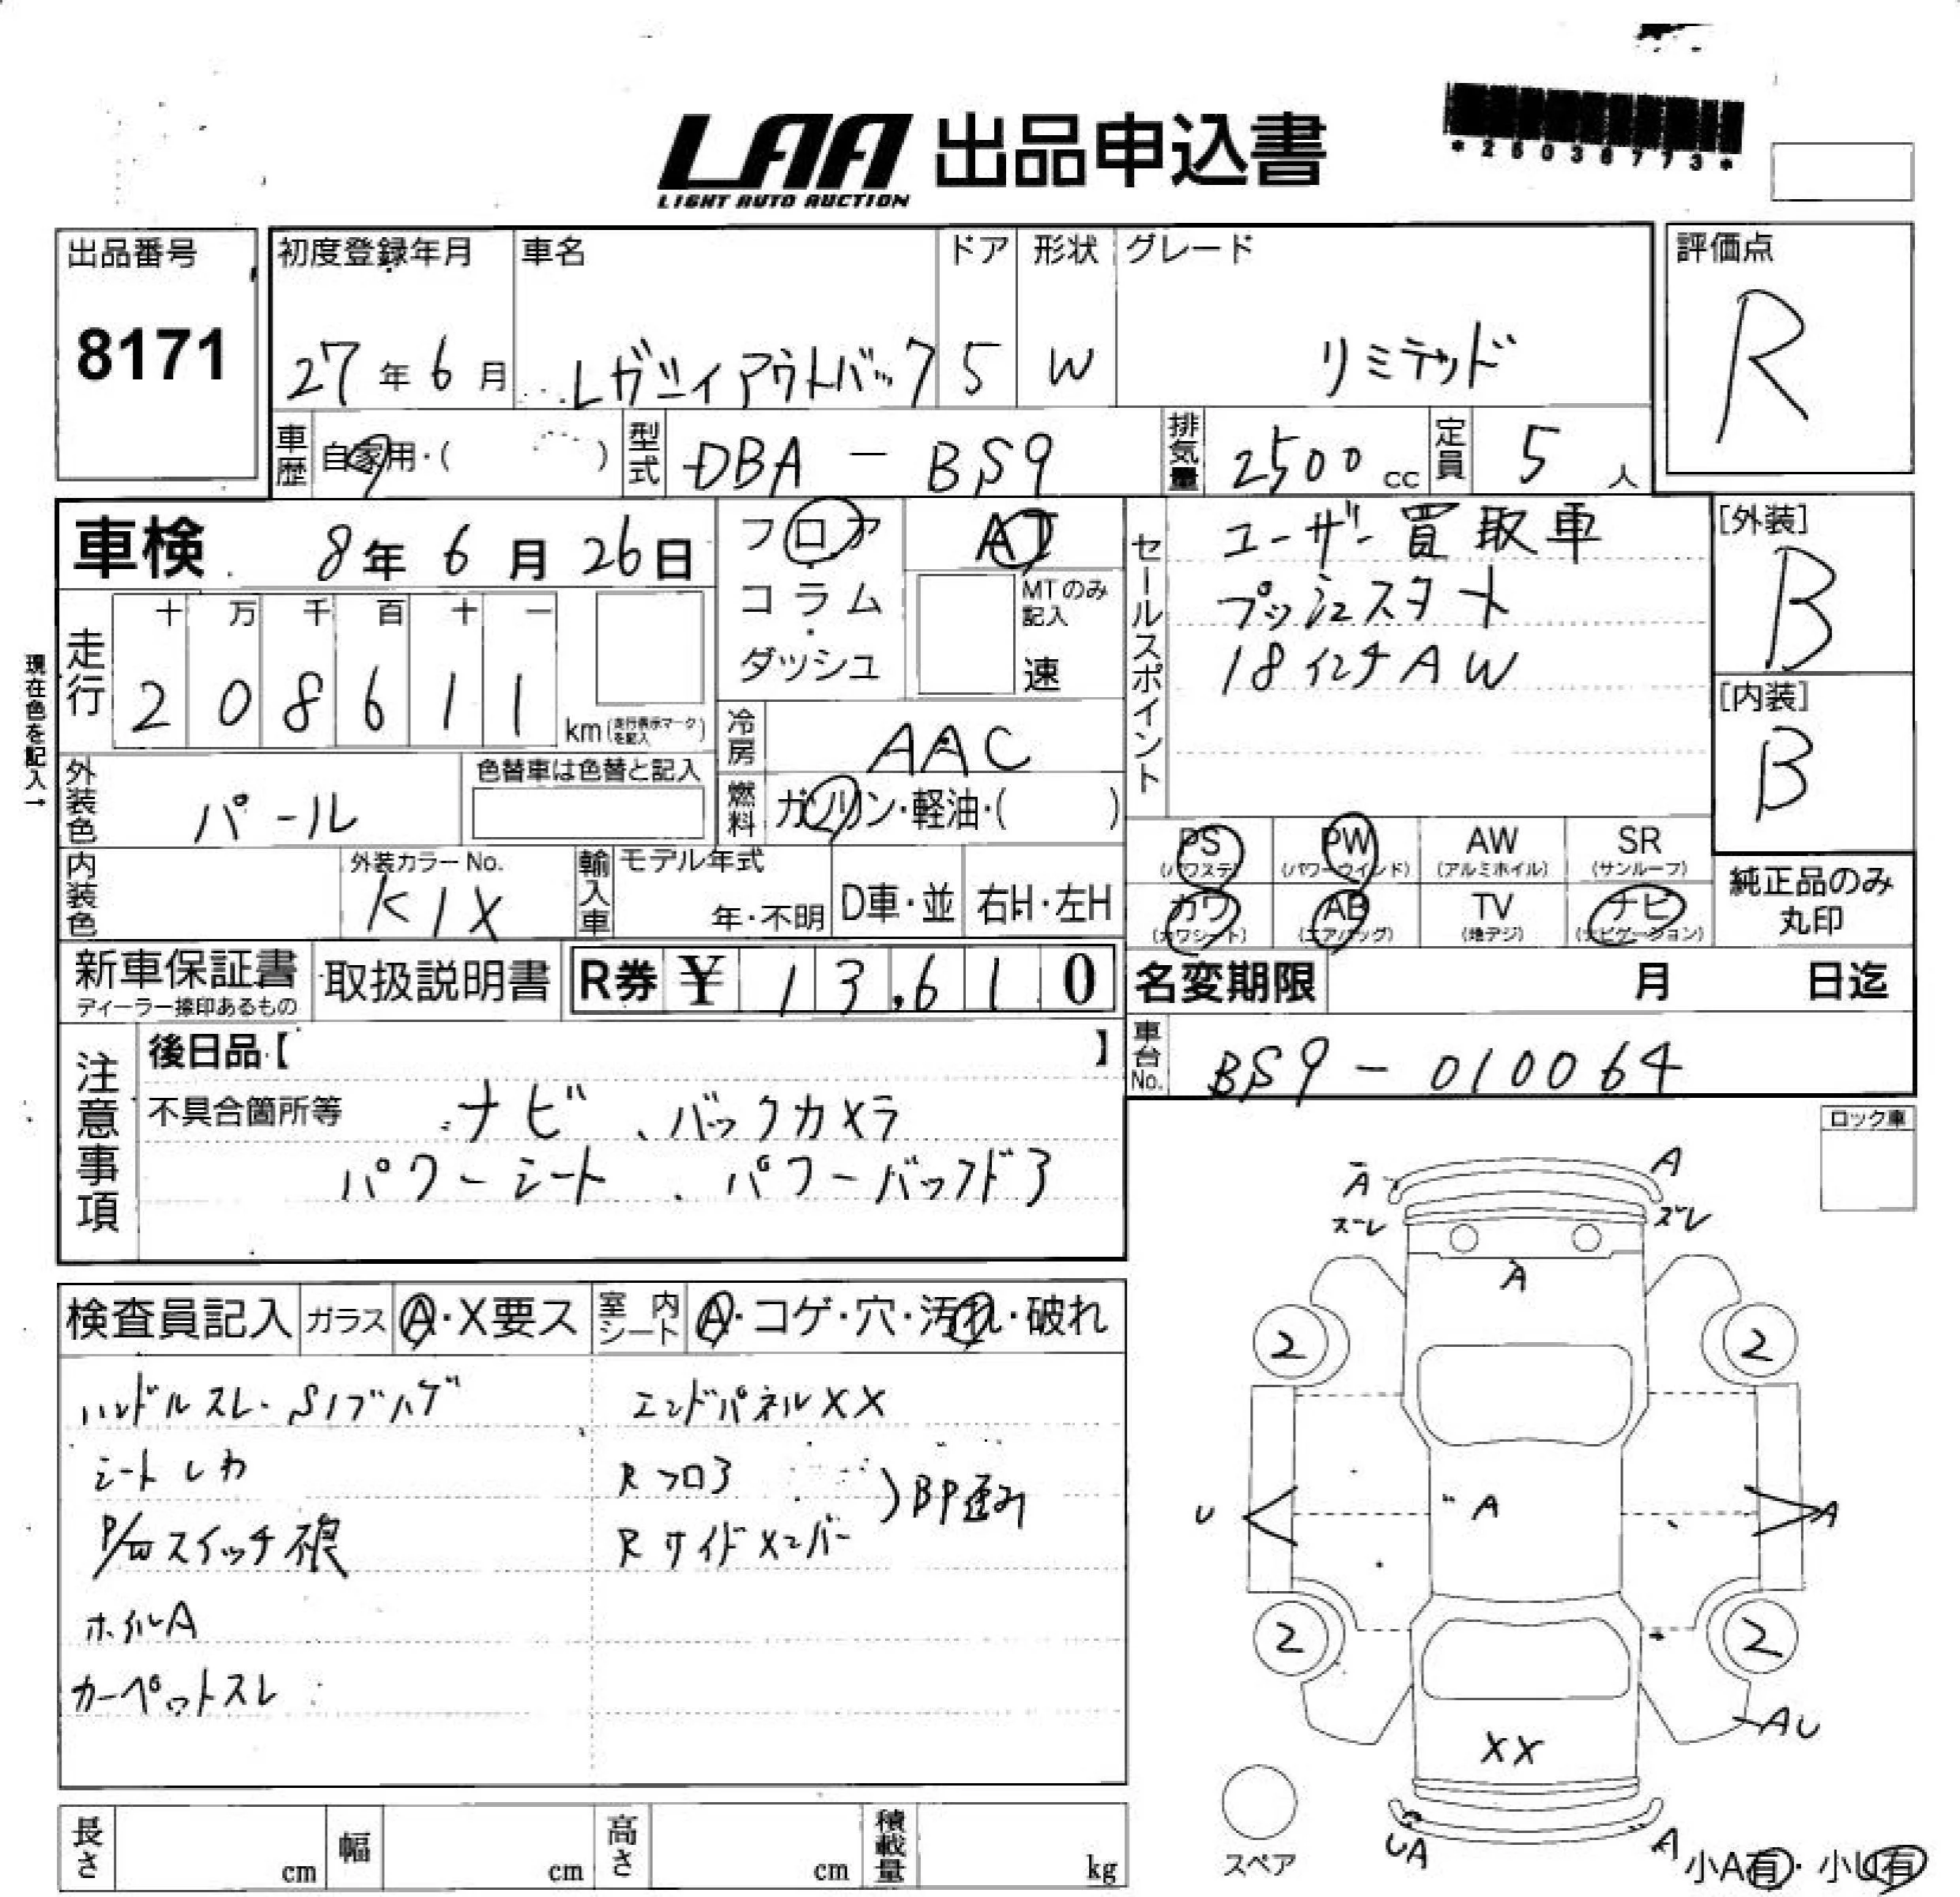 LAA 出品申込書
LIGHT AUTO AUCTION
*25036773*
出品番号
8171
初度登録年月
27年6月
車名
レガシィアウトバック
ドア
5
形状
W
グレード
リミテッド
評価点
R
車歴 自家用・( )
型式 DBA - BS9
排気量 2500 cc
定員 5 人
車検 8年 6月 26日
フロア
コラム
・
ダッシュ
AT
MTのみ
記入
速
セールスポイント
ユーザー買取車
プッシュスタート
18インチAW
[外装]
B
[内装]
B
現在色を記入→
走行
十 万 千 百 十 一
2 0 8 6 1 1
km(走行表示マークを記入)
冷房 AAC
燃料 ガソリン・軽油・( )
外装色 パール
色替車は色替と記入
内装色
外装カラーNo.
K1X
輸入車
モデル年式
年・不明
D車・並
右H・左H
PS
(パワステ)
PW
(パワーウインド)
AW
(アルミホイル)
SR
(サンルーフ)
カワ
(カワシート)
AB
(エアバッグ)
TV
(地デジ)
ナビ
(ナビゲーション)
純正品のみ
丸印
新車保証書
ディーラー捺印あるもの
取扱説明書
R券 ¥ 13,610
名変期限 月 日迄
車台No. BS9-010064
注意事項
後日品【 】
不具合箇所等 ナビ、バックカメラ
パワーシート、パワーバックドア
ロック車
検査員記入
ガラス A・X要ス
室内シート A・コゲ・穴・汚れ・破れ
ハンドルスレ・Sノブハゲ
シートレカ
P/Wスイッチ
ホイルA
カーペットスレ
エンドパネルXX
Rフロア
Rサイドメンバー
A
A
ズレ
ズレ
A
2
2
U
A
A
2
2
AU
XX
UA
A
スペア
小A有・小U有
長さ cm
幅 cm
高さ cm
積載量 kg